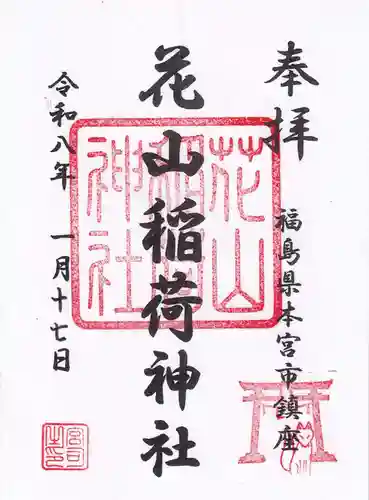 奉拝
福島県本宮市鎮座
花山稲荷神社
令和八年 一月十七日
花山
稲荷
神社
宮司之印